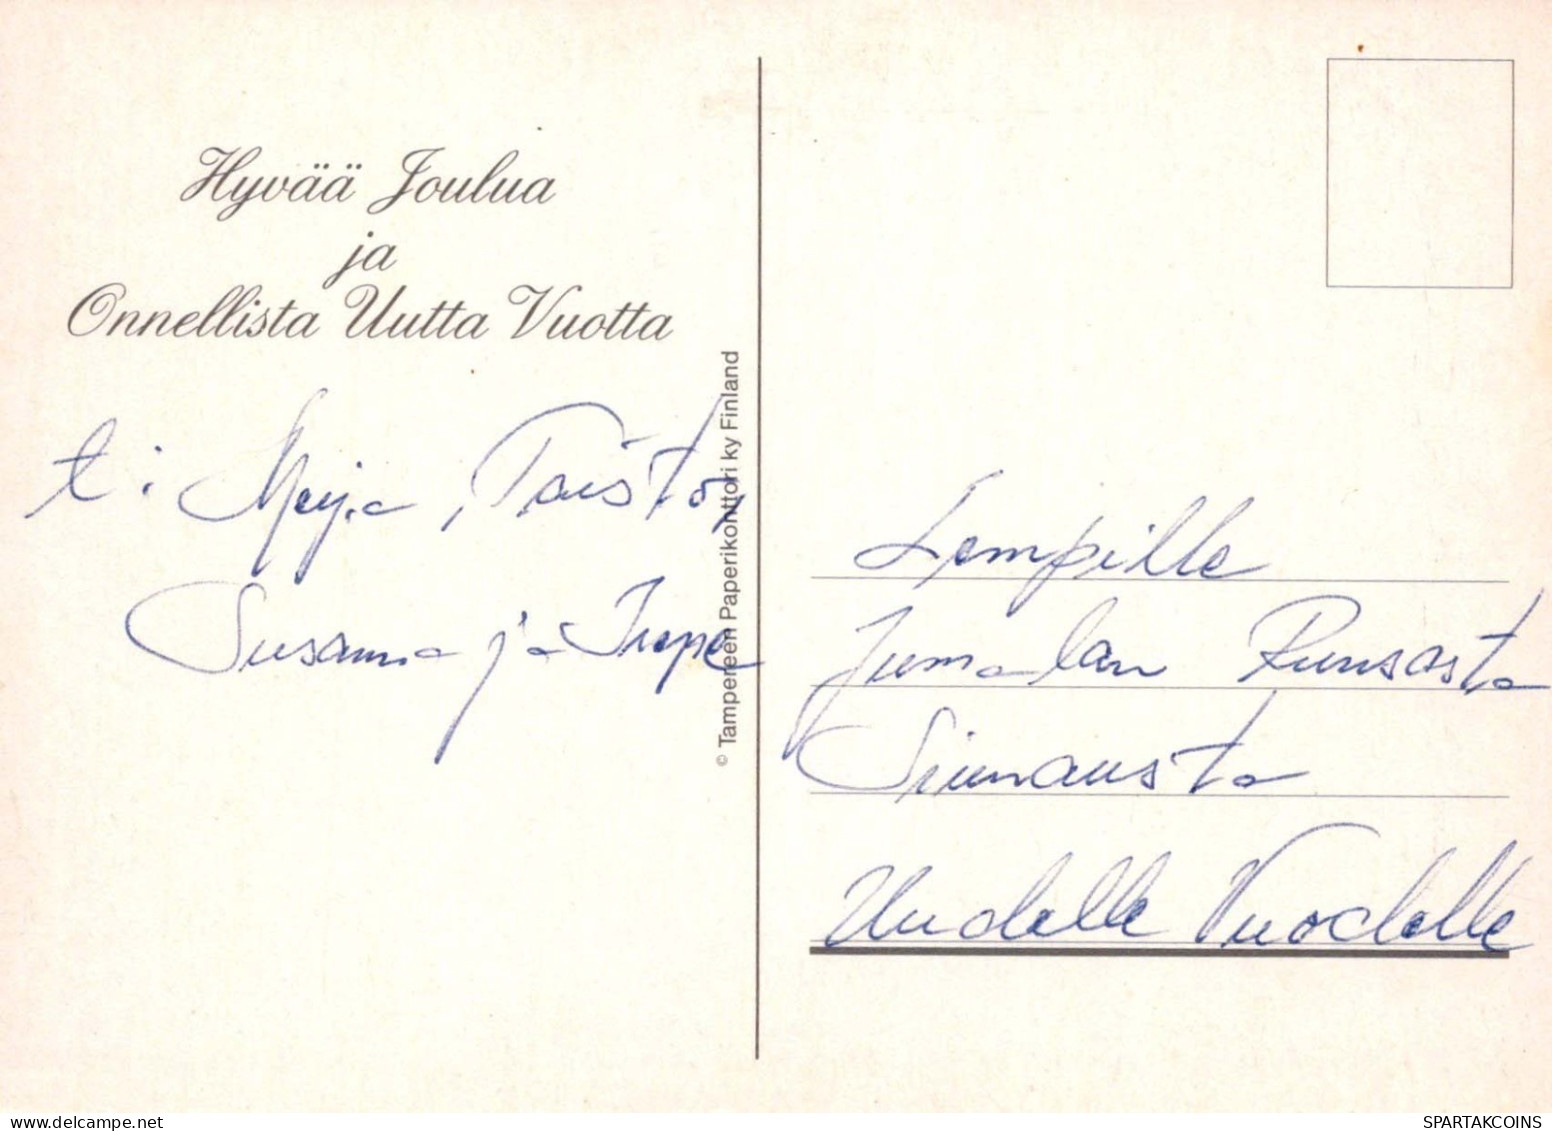 Hyvää Joulua
ja
Onnellista Uutta Vuotta
t: Meija, Taisto,
Susanna ja Irepe
© Tampereen Paperikonttori ky Finland
Lempille
Jumalan Runsasta
Siunausta
Uudelle Vuodelle
delcampe.net
the_seller
SPARTAKCOINS